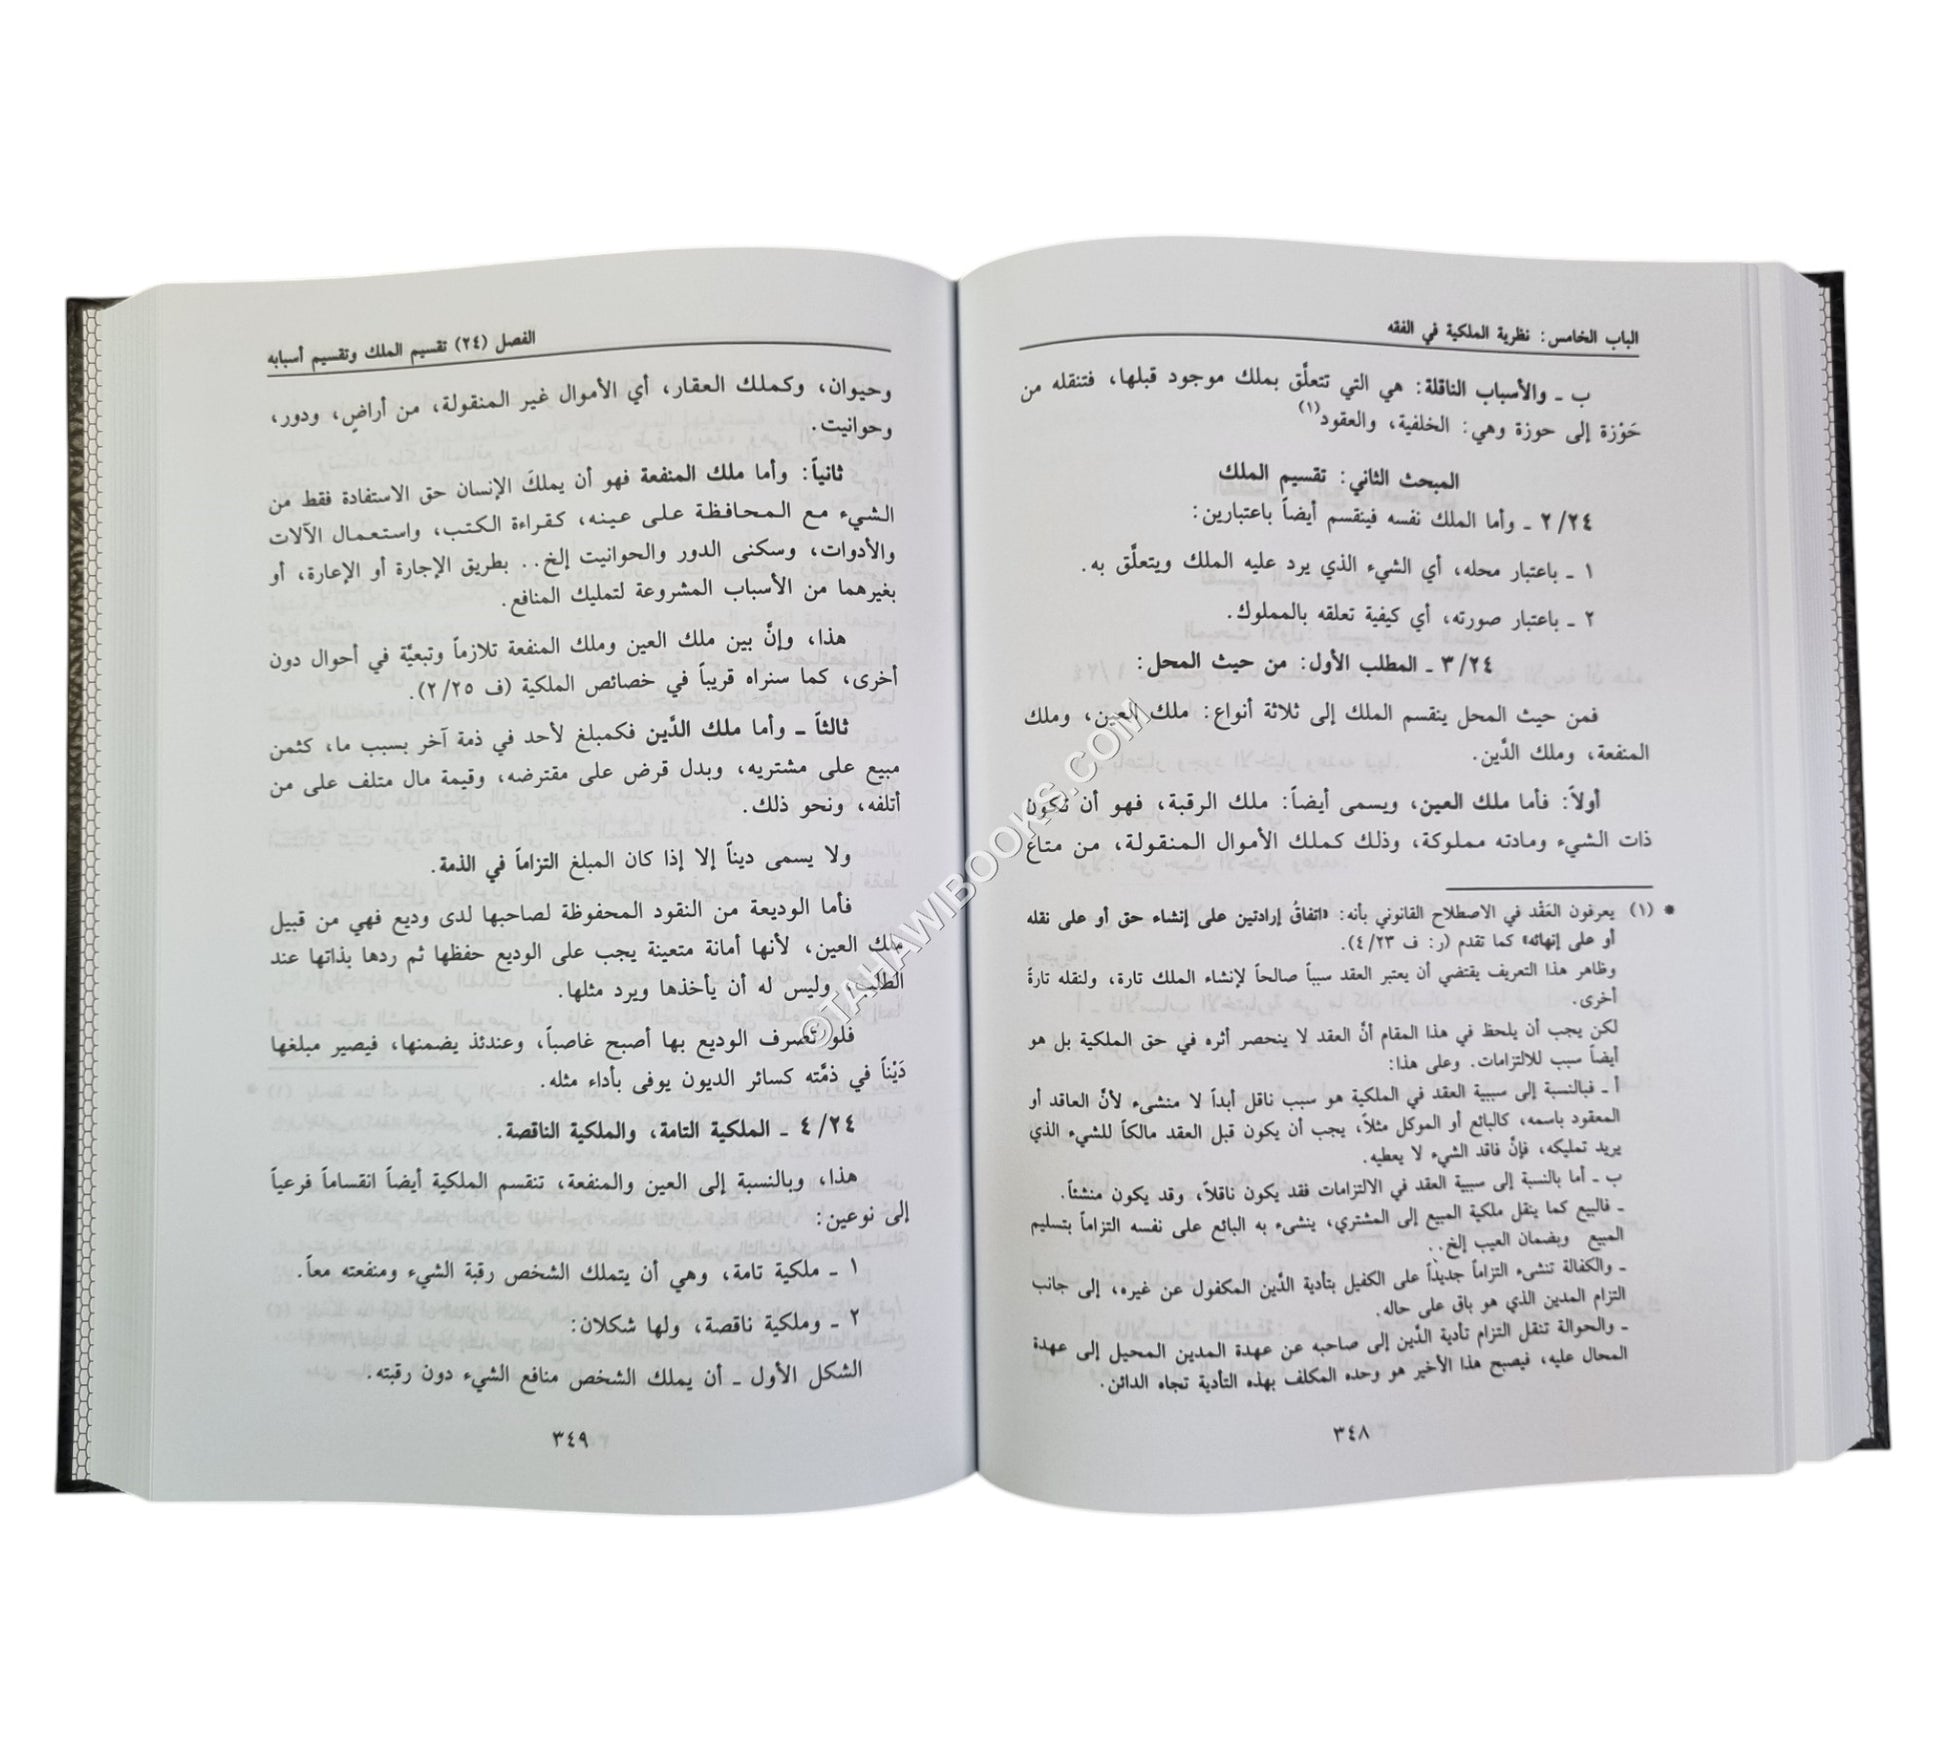 الباب الخامس: نظرية الملكية في الفقه
ب ـ والأسباب الناقلة: هي التي تتعلَّق بملك موجود قبلها، فتنقله من
حَوْزة إلى حوزة وهي: الخلفية، والعقود(١)
المبحث الثاني: تقسيم الملك
٢/٢٤ ـ وأما الملك نفسه فينقسم أيضاً باعتبارين:
١ ـ باعتبار محله، أي الشيء الذي يرد عليه الملك ويتعلَّق به.
٢ ـ باعتبار صورته، أي كيفية تعلقه بالمملوك.
٣/٢٤ ـ المطلب الأول: من حيث المحل:
فمن حيث المحل ينقسم الملك إلى ثلاثة أنواع: ملك العين، وملك
المنفعة، وملك الدَّين.
أولاً: فأما ملك العين، ويسمى أيضاً: ملك الرقبة، فهو أن تكون
ذات الشيء ومادته مملوكة، وذلك كملك الأموال المنقولة، من متاع
* (١) يعرفون العَقْد في الاصطلاح القانوني بأنه: «اتفاقُ إرادتين على إنشاء حق أو على نقله
أو على إنهائه» كما تقدم (ر: ف ٤/٢٣).
وظاهر هذا التعريف يقتضي أن يعتبر العقد سبباً صالحاً لإنشاء الملك تارة، ولنقله تارةً
أخرى.
لكن يجب أن يلحظ في هذا المقام أنَّ العقد لا ينحصر أثره في حق الملكية بل هو
أيضاً سبب للالتزامات. وعلى هذا:
أ ـ فبالنسبة إلى سببية العقد في الملكية هو سبب ناقل أبداً لا منشىء لأنَّ العاقد أو
المعقود باسمه، كالبائع أو الموكل مثلاً، يجب أن يكون قبل العقد مالكاً للشيء الذي
يريد تمليكه، فإنَّ فاقد الشيء لا يعطيه.
ب ـ أما بالنسبة إلى سببية العقد في الالتزامات فقد يكون ناقلاً، وقد يكون منشئاً.
ـ فالبيع كما ينقل ملكية المبيع إلى المشتري، ينشىء به البائع على نفسه التزاماً بتسليم
المبيع وبضمان العيب إلخ..
ـ والكفالة تنشىء التزاماً جديداً على الكفيل بتأدية الدَّين المكفول عن غيره، إلى جانب
التزام المدين الذي هو باق على حاله.
ـ والحوالة تنقل التزام تأدية الدَّين إلى صاحبه عن عهدة المدين المحيل إلى عهدة
المحال عليه، فيصبح هذا الأخير هو وحده المكلف بهذه التأدية تجاه الدائن.
٣٤٨
الفصل (٢٤) تقسيم الملك وتقسيم أسبابه
وحيوان، وكملك العقار، أي الأموال غير المنقولة، من أراضٍ، ودور،
وحوانيت.
ثانياً: وأما ملك المنفعة فهو أن يملكَ الإنسان حق الاستفادة فقط من
الشيء مع المحافظة على عينه، كقراءة الكتب، واستعمال الآلات
والأدوات، وسكنى الدور والحوانيت إلخ.. بطريق الإجارة أو الإعارة، أو
بغيرهما من الأسباب المشروعة لتمليك المنافع.
هذا، وإنَّ بين ملك العين وملك المنفعة تلازماً وتبعيَّة في أحوال دون
أخرى، كما سنراه قريباً في خصائص الملكية (ف ٢/٢٥).
ثالثاً ـ وأما ملك الدَّين فكمبلغ لأحد في ذمة آخر بسبب ما، كثمن
مبيع على مشتريه، وبدل قرض على مقترضه، وقيمة مال متلف على من
أتلفه، ونحو ذلك.
ولا يسمى ديناً إلا إذا كان المبلغ التزاماً في الذمة.
فأما الوديعة من النقود المحفوظة لصاحبها لدى وديع فهي من قبيل
ملك العين، لأنها أمانة متعينة يجب على الوديع حفظها ثم ردها بذاتها عند
الطلب، وليس له أن يأخذها ويرد مثلها.
فلو تصرف الوديع بها أصبح غاصباً، وعندئذ يضمنها، فيصير مبلغها
دَيْناً في ذمَّته كسائر الديون يوفى بأداء مثله.
٤/٢٤ ـ الملكية التامة، والملكية الناقصة.
هذا، وبالنسبة إلى العين والمنفعة، تنقسم الملكية أيضاً انقساماً فرعياً
إلى نوعين:
١ ـ ملكية تامة، وهي أن يتملك الشخص رقبة الشيء ومنفعته معاً.
٢ ـ وملكية ناقصة، ولها شكلان:
الشكل الأول ـ أن يملك الشخص منافع الشيء دون رقبته.
٣٤٩
©TAHAWIBOOKS.COM